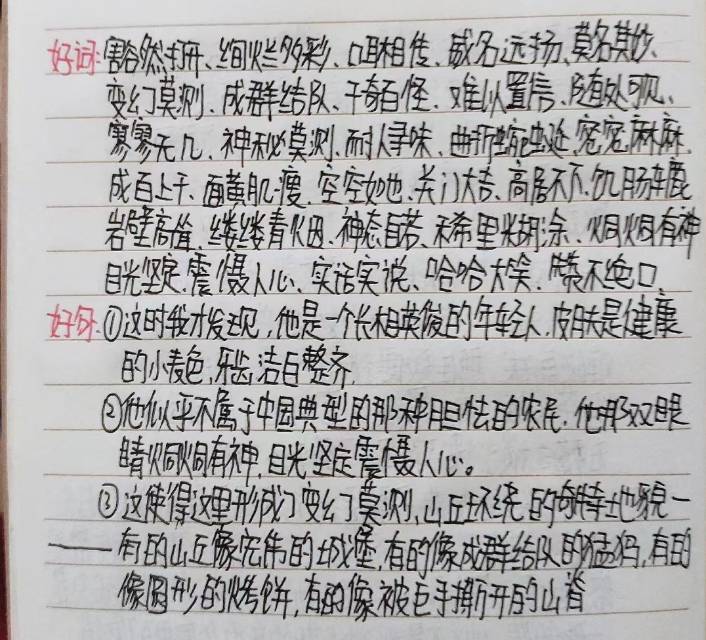 好词:豁然开、绚烂多彩、口口相传、威名远扬、莫名其妙、
变幻莫测、成群结队、千奇百怪、难以置信、随处可见、
寥寥无几、神秘莫测、耐人寻味、曲折蜿蜒、密密麻麻、
成百上千、面黄肌瘦、空空如也、关门大吉、高居不下、饥肠辘辘
岩壁高耸、缕缕青烟、神态自若、稀里糊涂、炯炯有神
目光坚定、震慑人心、实话实说、哈哈大笑、赞不绝口、
好句:①这时我才发现,他是一个长相英俊的年轻人,皮肤是健康
的小麦色,牙齿洁白整齐.
②他似乎不属于中国典型的那种胆怯的农民.他那双眼
睛炯炯有神,目光坚定震慑人心。
③这使得这里形成了变幻莫测,山丘环绕的奇特地貌一
——有的山丘像宏伟的城堡,有的像成群结队的猛犸,有的
像圆形的烤饼,有的像被巨手撕开的山脊